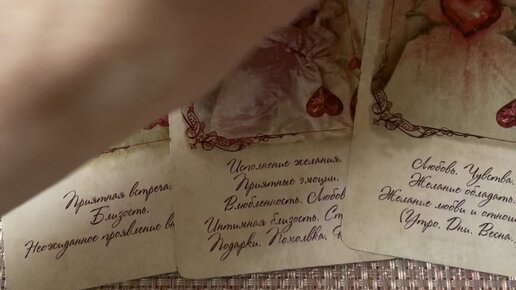 Приятная встреча.
Близость.
Неожиданное проявление
Исполнение желания.
Приятные эмоции.
Влюбленность.
Интимная близость.
Подарки. Помолвка.
Любовь. Чувства.
Желание обладать.
Желание любви и
(Утро. Дни. Весна.